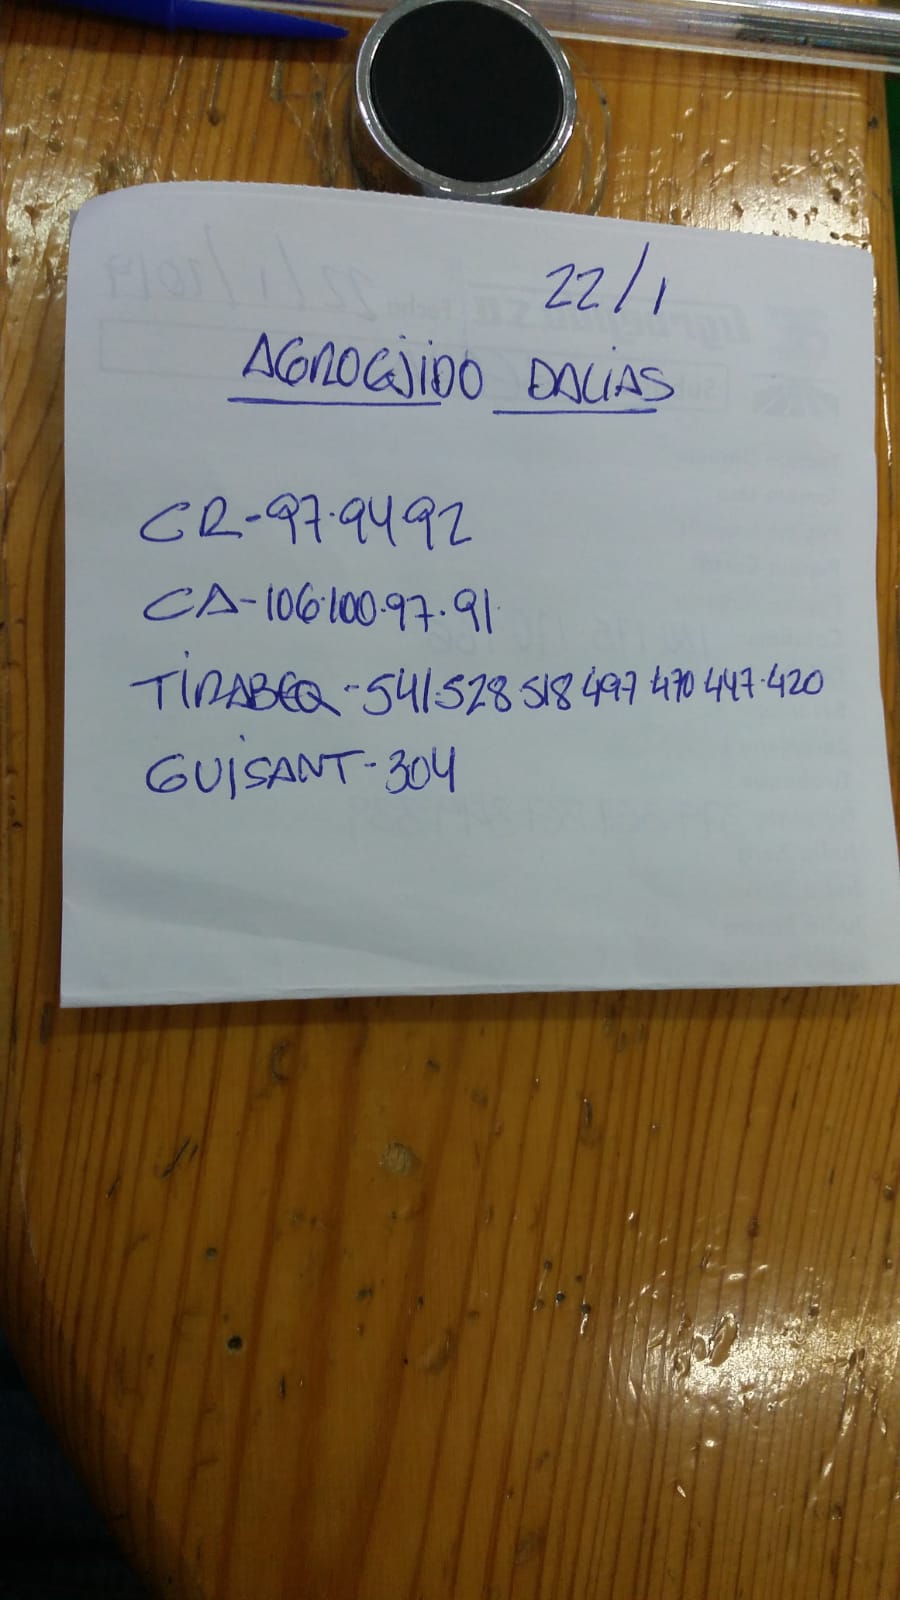 22/1
AGROEJIDO DALIAS
CR-97.94 92
CA-106.100.97.91
TIRABEQ-541.528 518 497 470 447.420
GUISANT-304